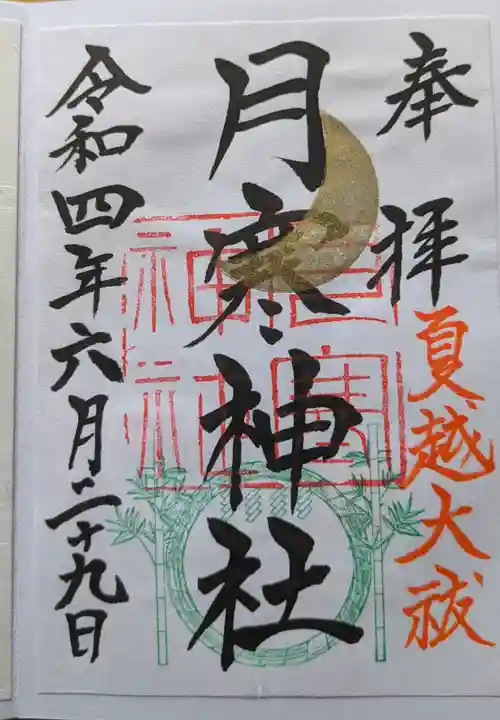 奉拝
夏越大祓
月寒神社
令和四年六月二十九日
月寒神社